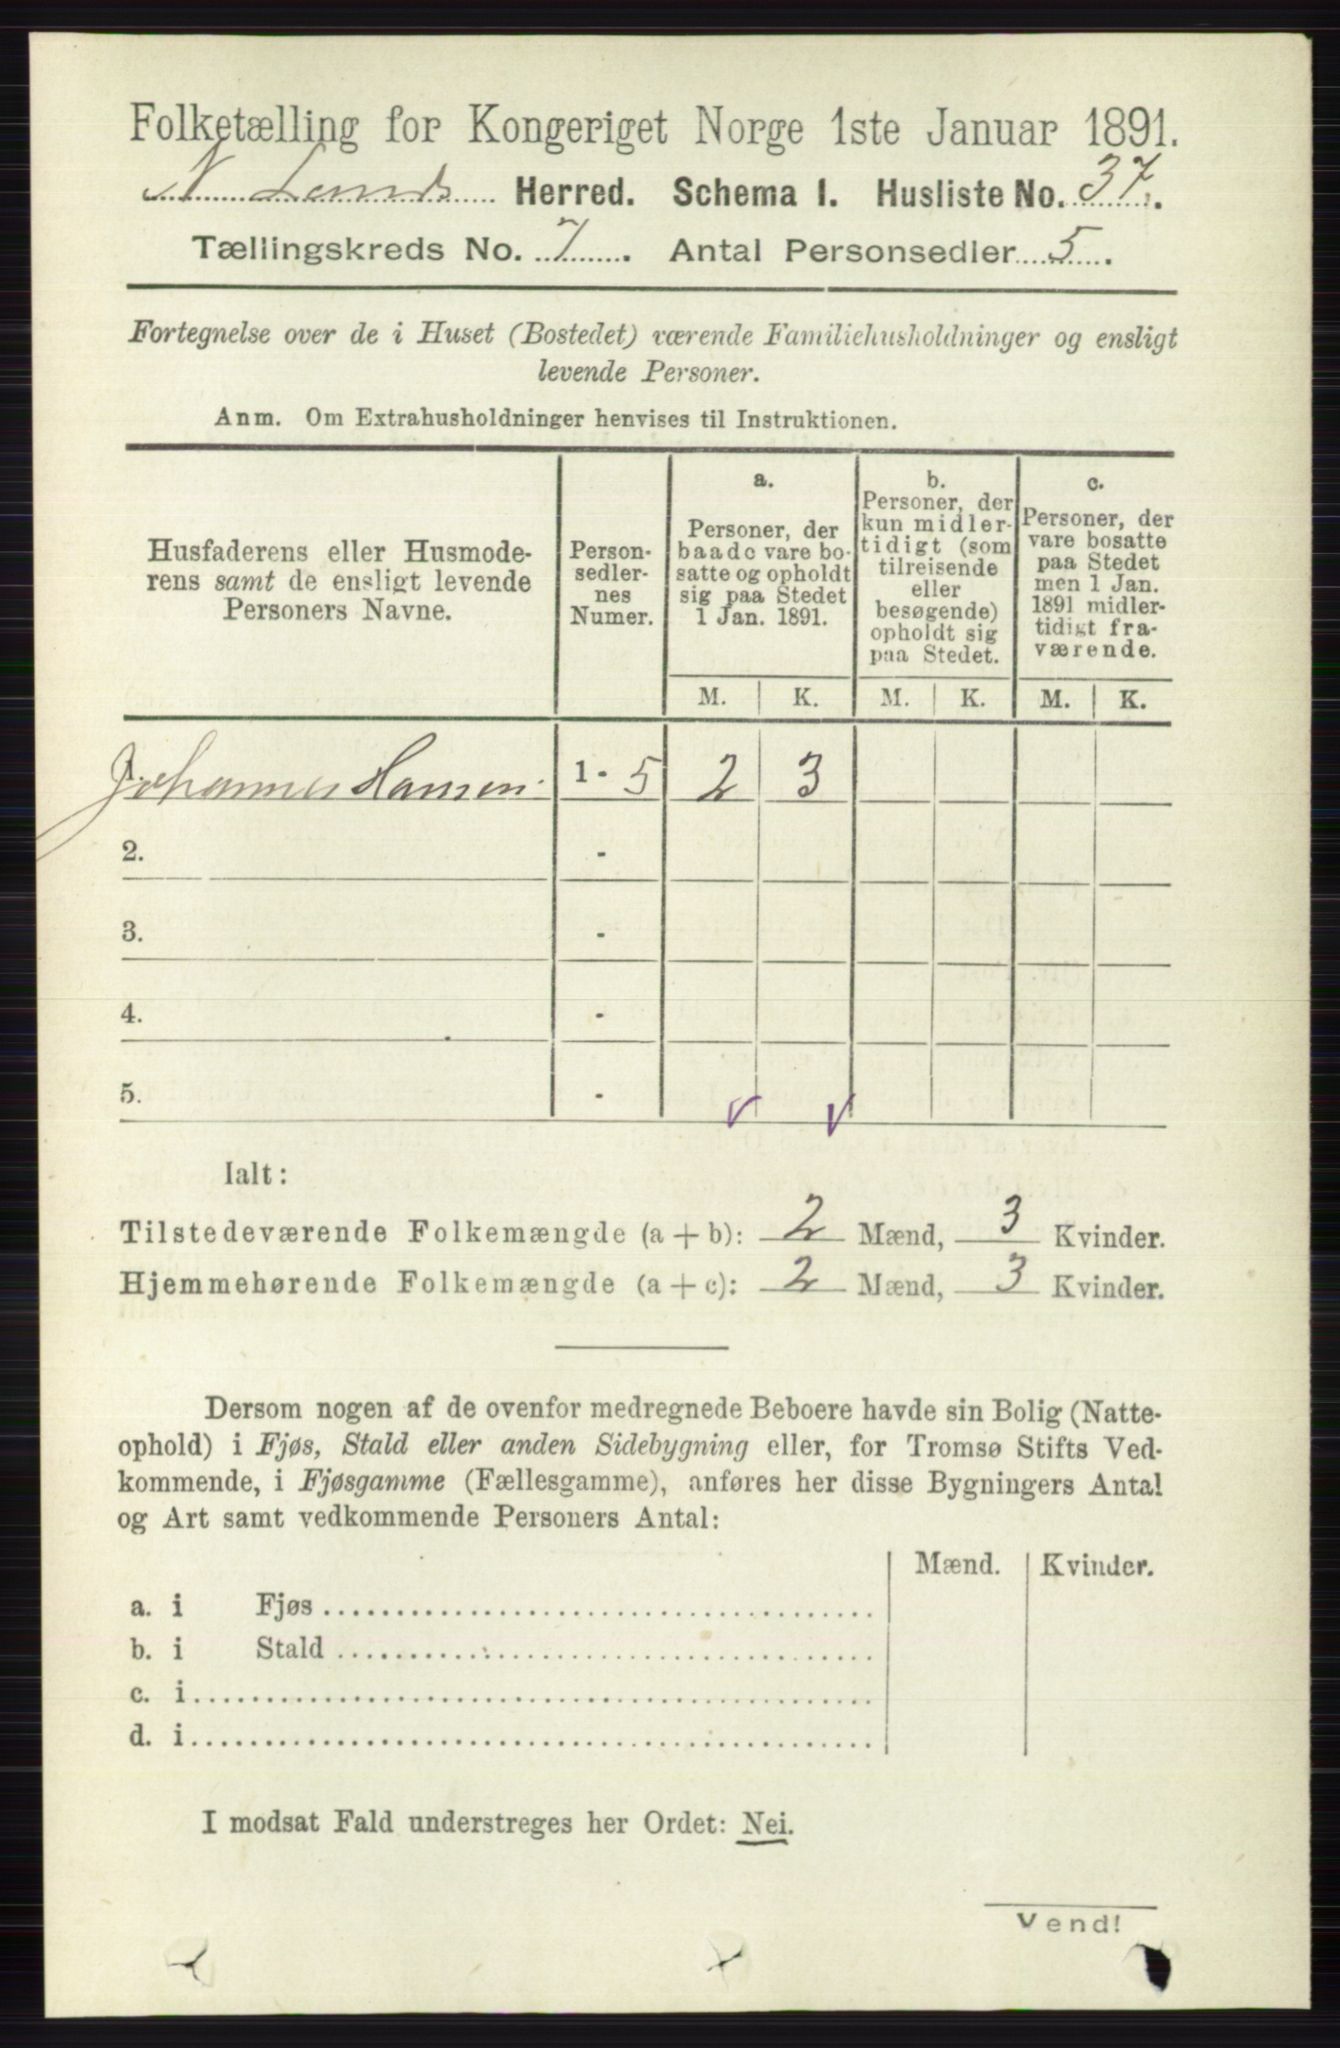 Folketælling for Kongeriget Norge 1ste Januar 1891.
N. Lands Herred. Schema I. Husliste No. 37.
Tællingskreds No. 7. Antal Personsedler 5.
Fortegnelse over de i Huset (Bostedet) værende Familiehusholdninger og ensligt
levende Personer.
Anm. Om Extrahusholdninger henvises til Instruktionen.
Husfaderens eller Husmode-
rens samt de ensligt levende
Personers Navne.
Person-
sedler-
nes
Numer.
a.
Personer, der
baade vare bo-
satte og opholdt
sig paa Stedet
1 Jan. 1891.
b.
Personer, der
kun midler-
tidigt (som
tilreisende
eller
besøgende)
opholdt sig
paa Stedet.
c.
Personer, der
vare bosatte
paa Stedet
men 1 Jan.
1891 midler-
tidigt fra-
værende.
M. K. M. K. M. K.
1. Johannes Hansen. 1 - 5 2 3
2. -
3. -
4. -
5. -
Ialt:
Tilstedeværende Folkemængde (a + b): 2 Mænd, 3 Kvinder.
Hjemmehørende Folkemængde (a + c): 2 Mænd, 3 Kvinder.
Dersom nogen af de ovenfor medregnede Beboere havde sin Bolig (Natte-
ophold) i Fjøs, Stald eller anden Sidebygning eller, for Tromsø Stifts Ved-
kommende, i Fjøsgamme (Fællesgamme), anføres her disse Bygningers Antal
og Art samt vedkommende Personers Antal:
Mænd. Kvinder.
a. i Fjøs
b. i Stald
c. i
d. i
I modsat Fald understreges her Ordet: Nei.
Vend!